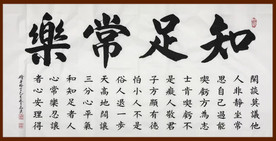 知足常樂
閒談莫議他
人非靜坐常
思自己過能
喫虧方為志
士肯喫虧不
是癡人敬君
子方顯有德
怕小人不是
俗人退一步
天高地闊讓
三分心平氣
和知足者人
心常樂忍讓
者心安理得